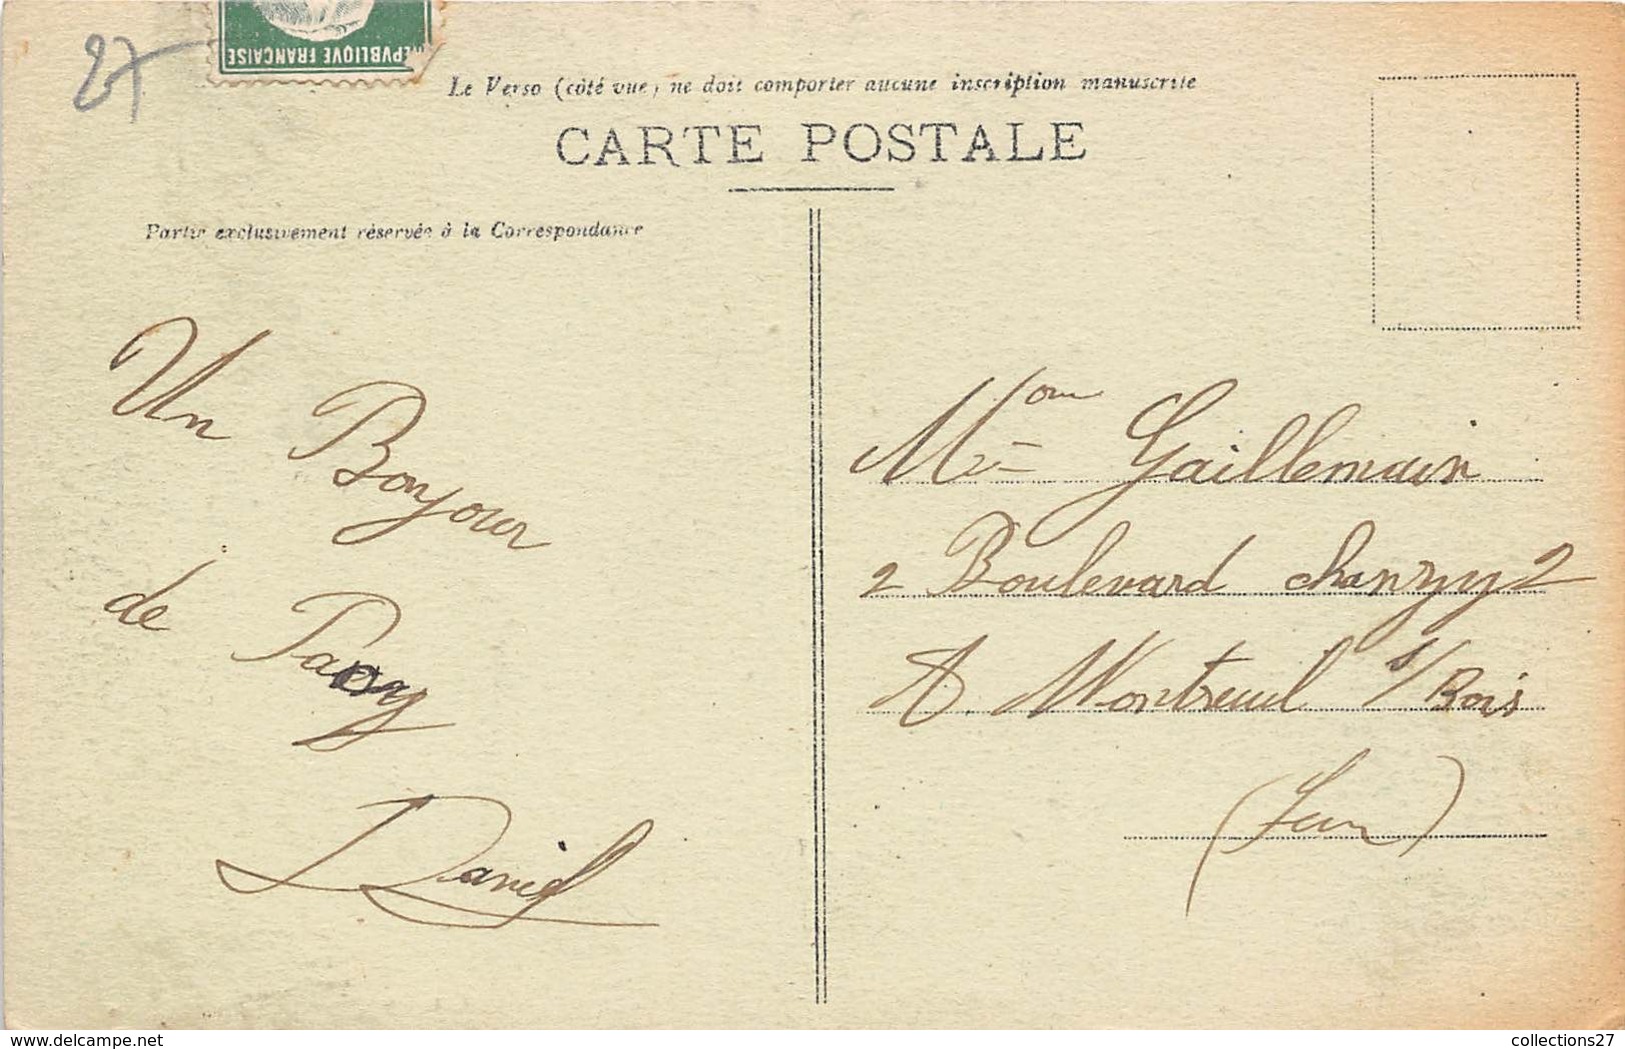 27
REPVBLIQVE FRANCAISE
Le Verso (côté vue) ne doit comporter aucune inscription manuscrite
CARTE POSTALE
Partie exclusivement réservée à la Correspondance
Un Bonjour
de Pacy
Daniel
Mme Gaillemain
2 Boulevard Chanzy 2
A. Montreuil s/ Bois
(Seine)
delcampe.net
collections27